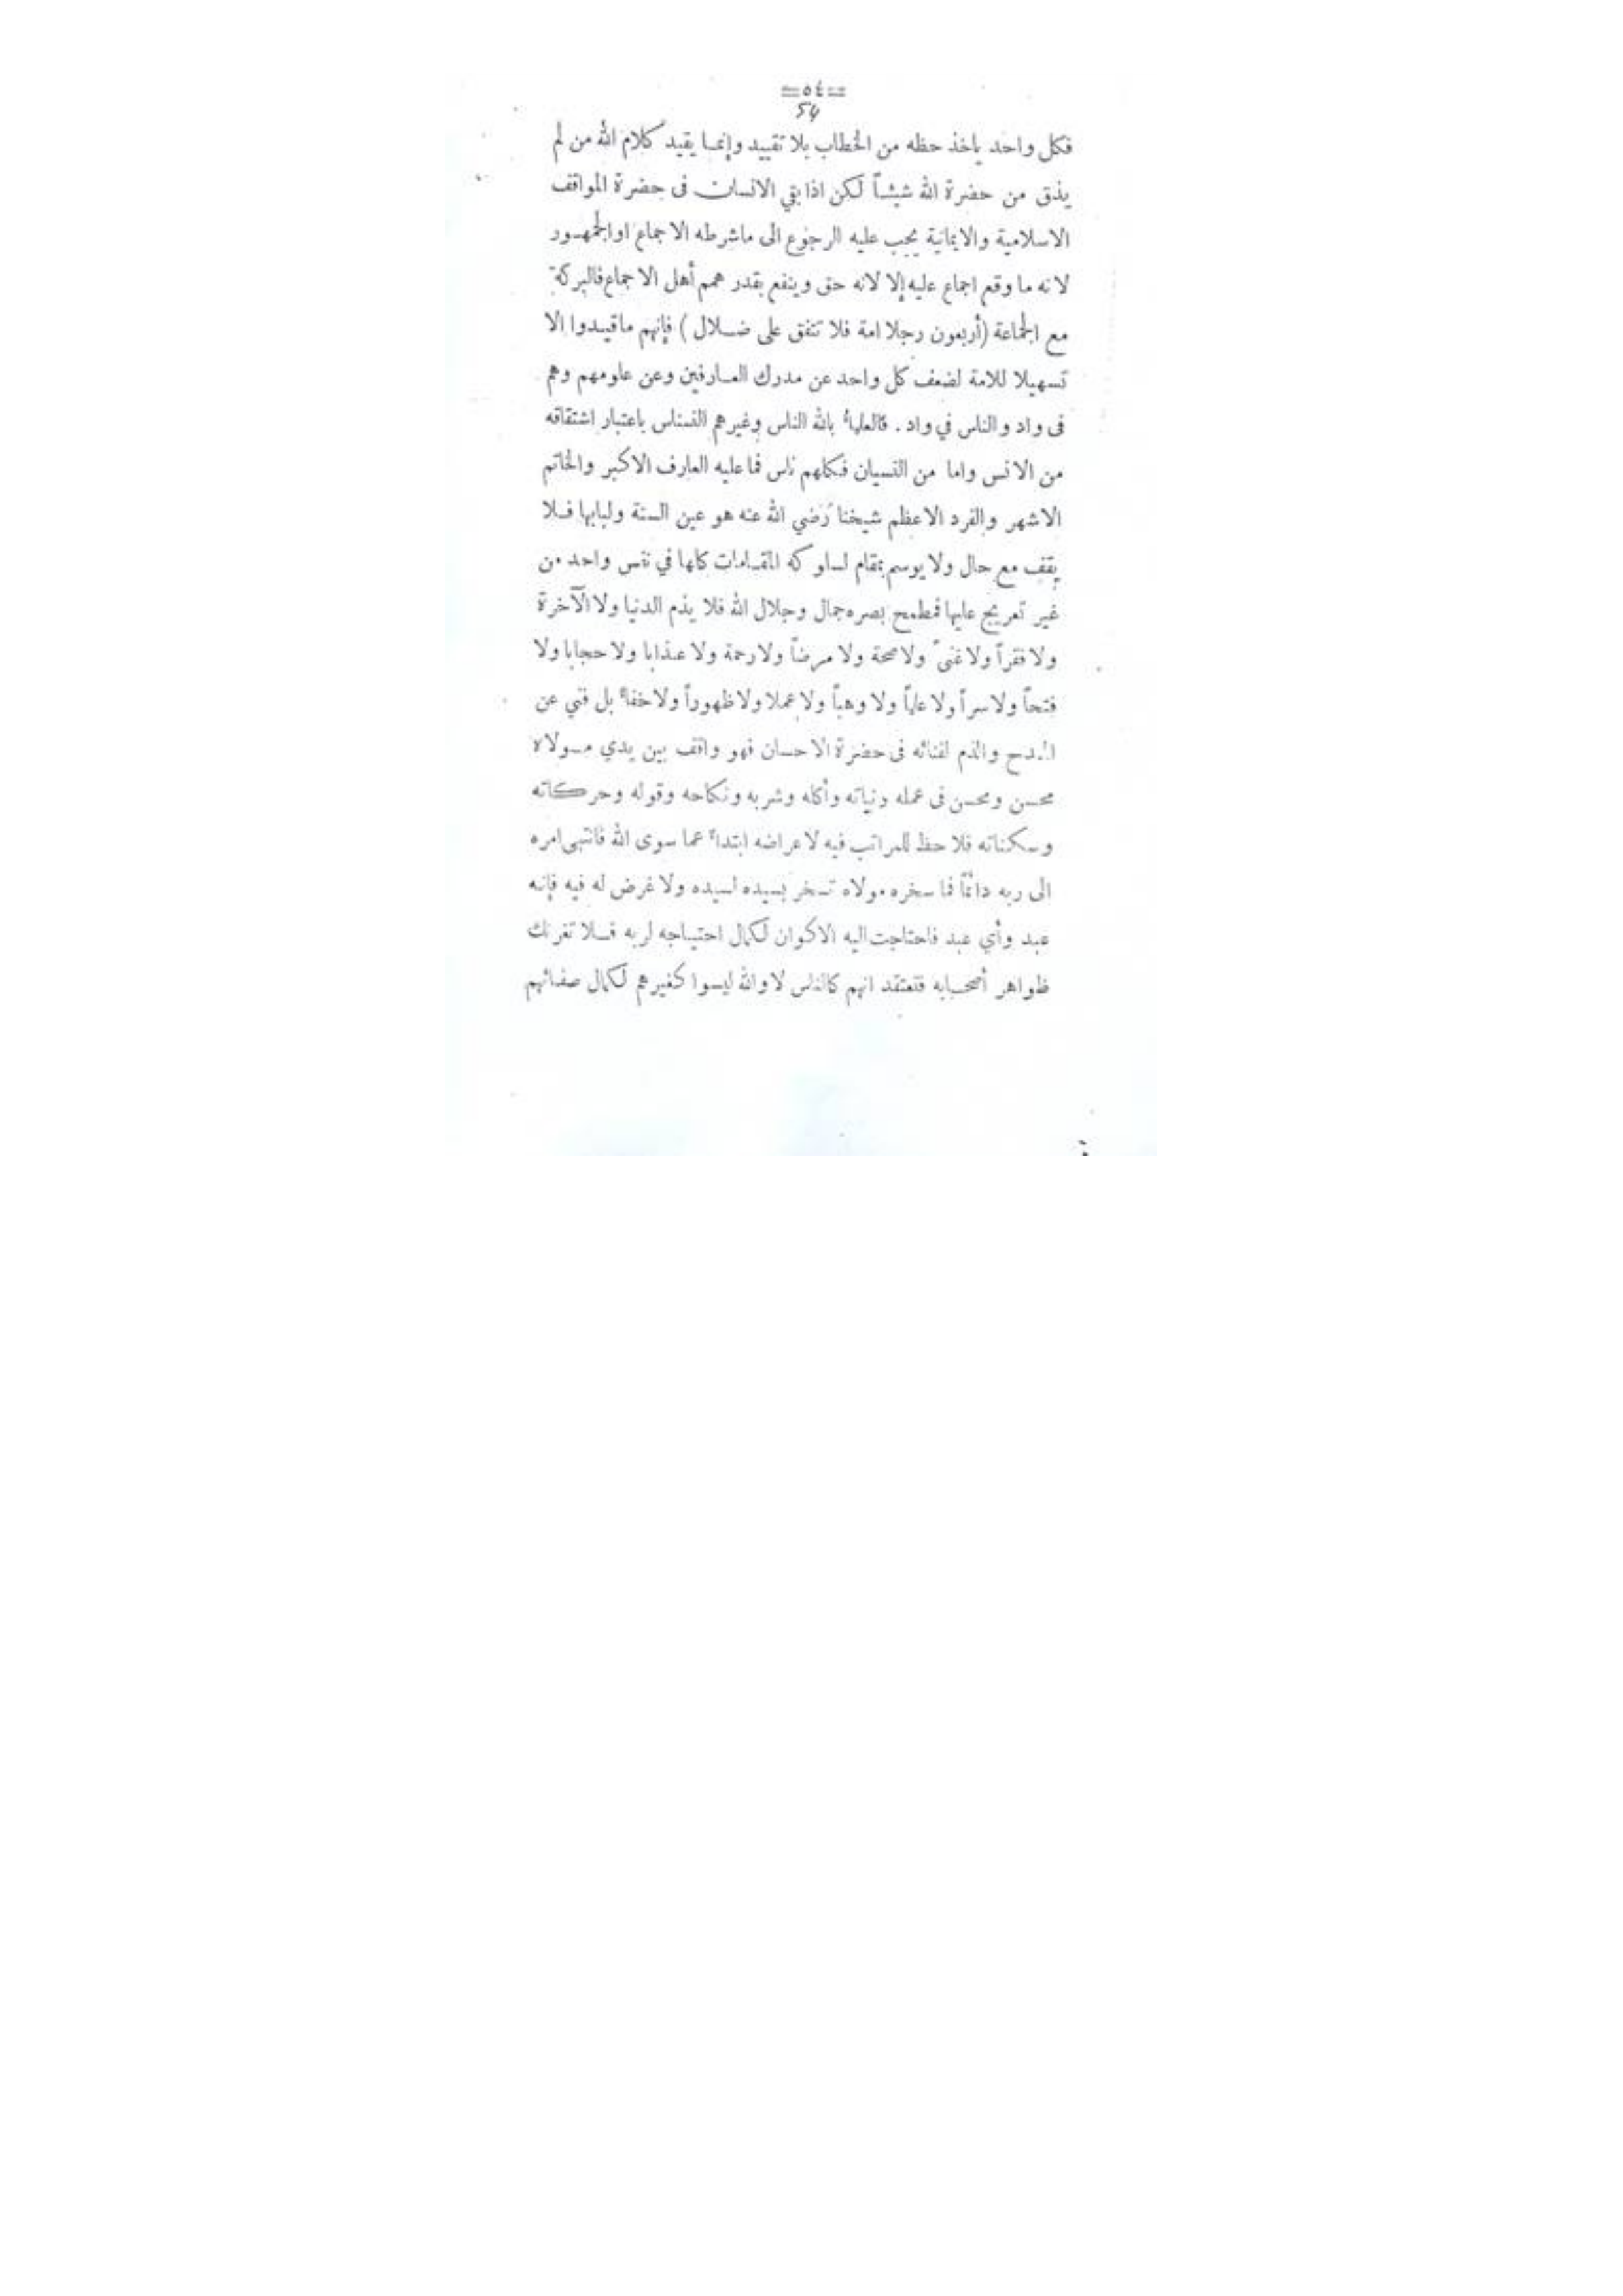 =٥٤=
54
فكل واحد يأخذ حظه من الخطاب بلا تقييد وإنما يقيد كلام الله من لم
يذق من حضرة الله شيئاً لكن اذا بقي الانسان فى حضرة المواقف
الاسلامية والايمانية يجب عليه الرجوع الى ماشرطه الاجماع اوالجمهور
لانه ما وقع اجماع عليه إلا لانه حق وينفع بقدر همم أهل الاجماع فالبركة
مع الجماعة (أربعون رجلا امة فلا تتفق على ضلال) فإنهم ماقيدوا الا
تسهيلا للامة لضعف كل واحد عن مدرك العارفين وعن علومهم وهم
فى واد والناس في واد . فالعلماء بالله الناس وغيرهم النسناس باعتبار اشتقاقه
من الانس واما من النسيان فكلهم ناس فما عليه العارف الاكبر والخاتم
الاشهر والفرد الاعظم شيخنا رضي الله عنه هو عين السنة ولبابها فلا
يقف مع حال ولا يوسم بمقام لسلوكه المقامات كلها في نفس واحد من
غير تعريج عليها فمطمح بصره جمال وجلال الله فلا يذم الدنيا ولا الآخرة
ولا فقراً ولا غنىً ولا صحة ولا مرضاً ولا رحمة ولا عذابا ولا حجابا ولا
فتحاً ولا سراً ولا علماً ولا وهباً ولا عملا ولا ظهوراً ولا خفاءً بل فني عن
المدح والذم لفنائه فى حضرة الاحسان فهو واقف بين يدي مولاه
محسن ومحسن فى عمله ونياته وأكله وشربه ونكاحه وقوله وحركاته
وسكناته فلا حظ للمراتب فيه لاعراضه ابتداءً عما سوى الله فانتهى امره
الى ربه دائماً فما سخره مولاه تسخر بسيده لسيده ولا غرض له فيه فإنه
عبد وأي عبد فاحتاجت اليه الاكوان لكمال احتياجه لربه فلا تغرنك
ظواهر أصحابه فتعتقد انهم كالناس لا والله ليسوا كغيرهم لكمال صفائهم